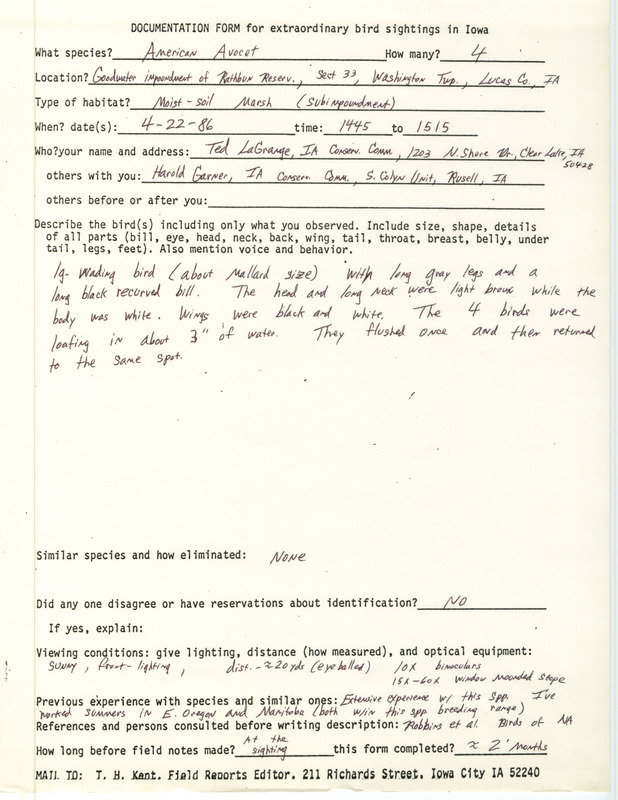 DOCUMENTATION FORM for extraordinary bird sightings in Iowa
What species? American Avocet How many? 4
Location? Goodwater impoundment of Rathbun Reserv., Sect 33, Washington Twp., Lucas Co., IA
Type of habitat? Moist-soil Marsh (Subimpoundment)
When? date(s): 4-22-86 time: 1445 to 1515
Who?your name and address: Ted LaGrange, IA Conserv. Comm., 1203 N. Shore Dr., Clear Lake, IA
50428
others with you: Harold Garner, IA Conserv. Comm., S. Colyn Unit, Rusell, IA
others before or after you:
Describe the bird(s) including only what you observed. Include size, shape, details
of all parts (bill, eye, head, neck, back, wing, tail, throat, breast, belly, under
tail, legs, feet). Also mention voice and behavior.
lg. wading bird (about Mallard size) with long gray legs and a
long black recurved bill. The head and long neck were light brown while the
body was white. Wings were black and white. The 4 birds were
loafing in about 3" of water. They flushed once and then returned
to the same spot.
Similar species and how eliminated: None
Did any one disagree or have reservations about identification? NO
If yes, explain:
Viewing conditions: give lighting, distance (how measured), and optical equipment:
Sunny, front-lighting, dist. - ≈20yds (eyeballed) 10X binoculars
15X-60X window mounded scope
Previous experience with species and similar ones: Extensive experience w/ this spp. I've
worked summers in E. Oregon and Manitoba (both w/in this spp. breeding range)
References and persons consulted before writing description: Robbins et al. Birds of NA
How long before field notes made? At the sighting this form completed? ≈ 2 months
MAIL TO: T. H. Kent, Field Reports Editor, 211 Richards Street, Iowa City IA 52240